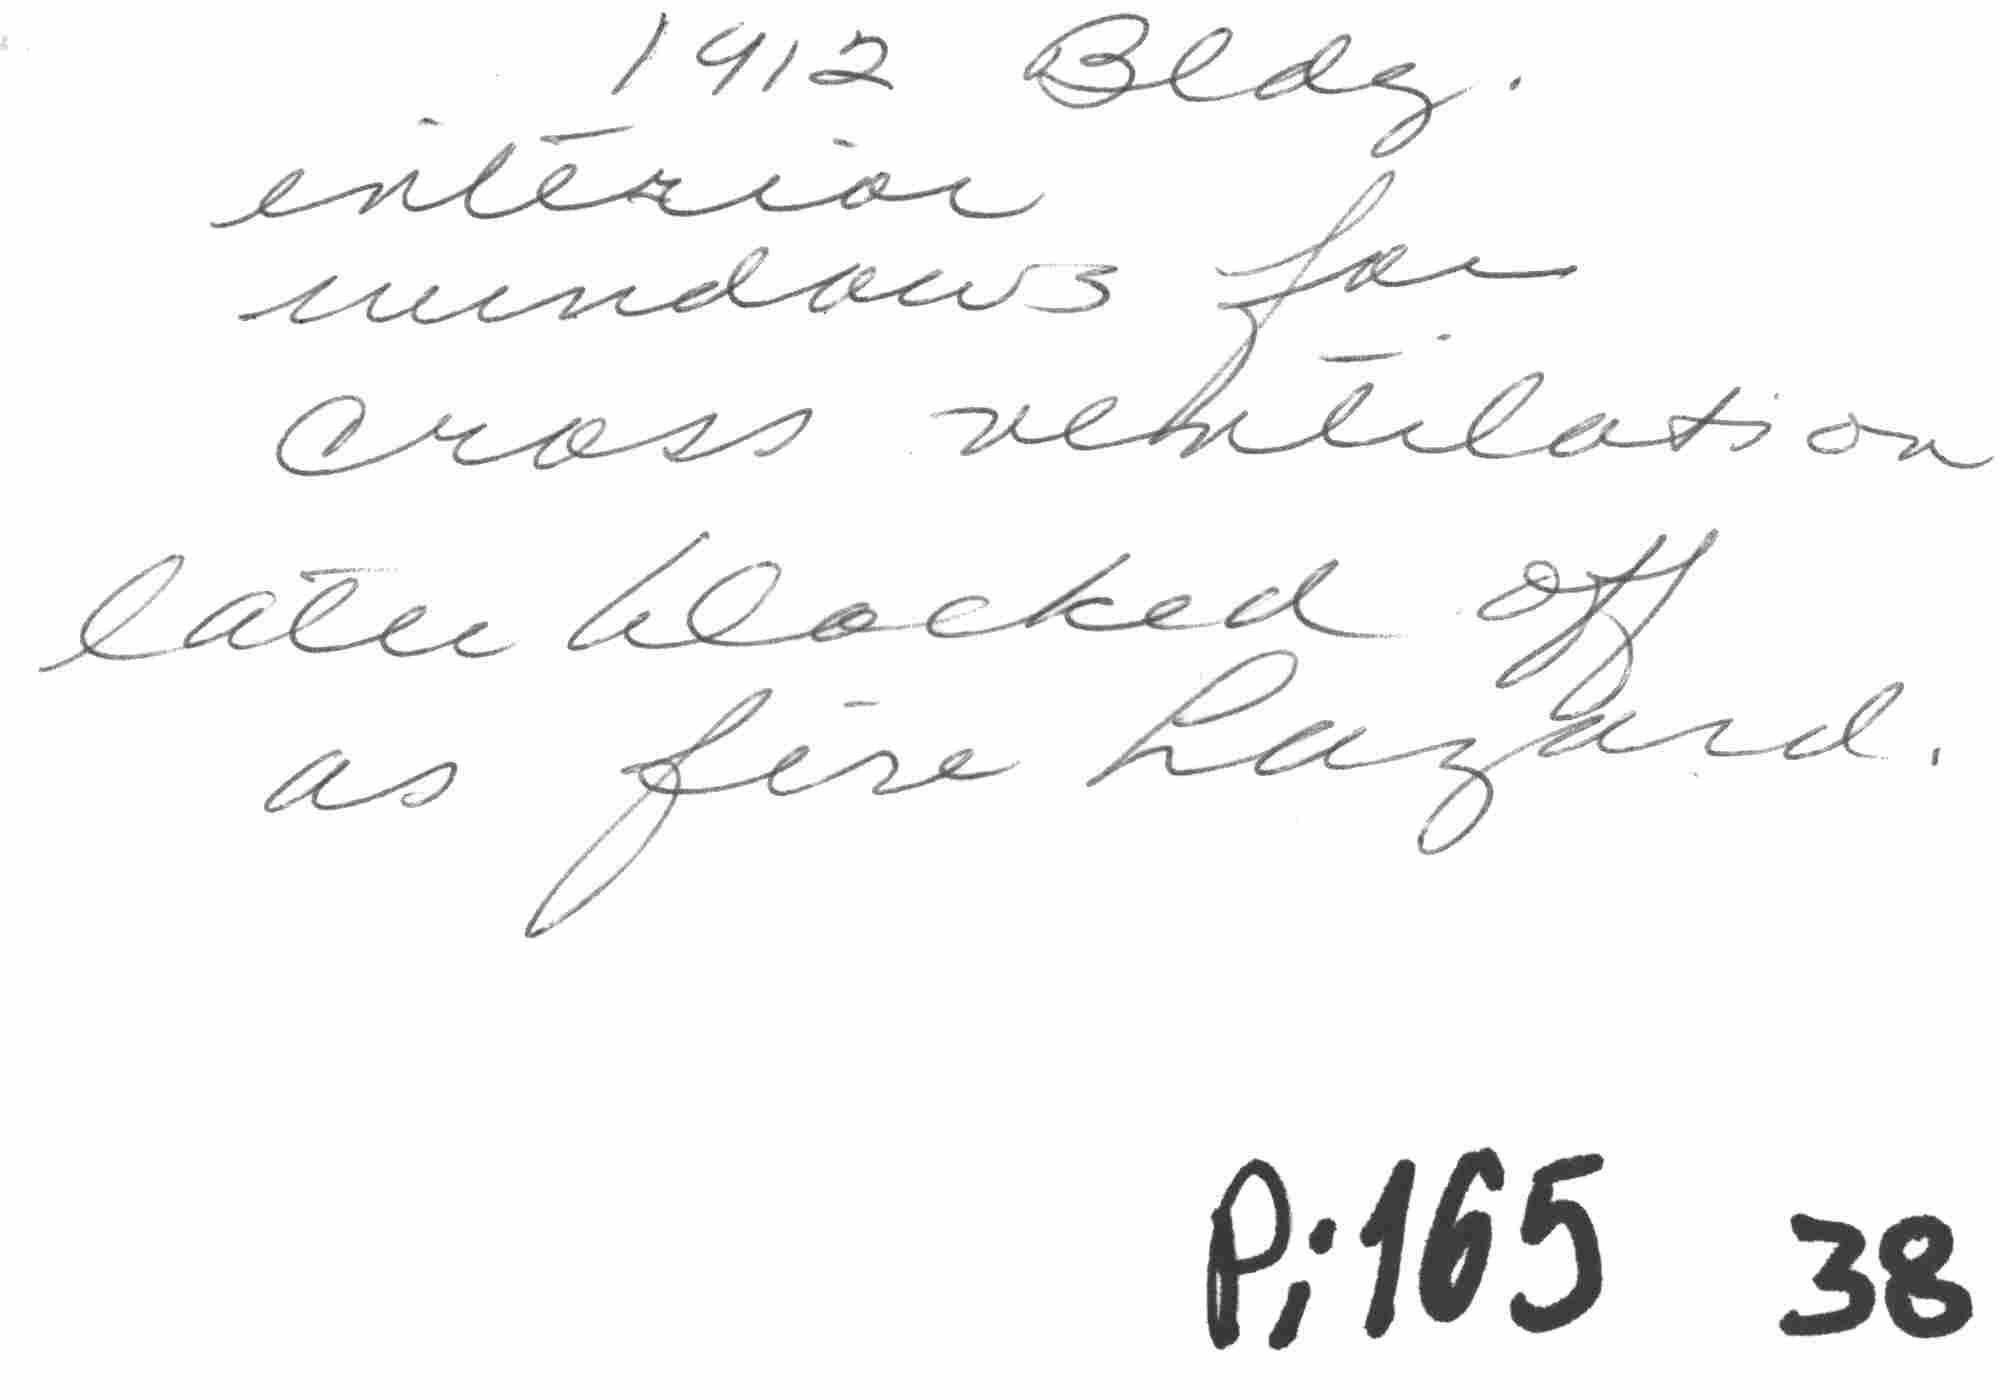 1912 Bldg.
interior
windows for
cross ventilation
later blocked off
as fire hazard.
P;165 38